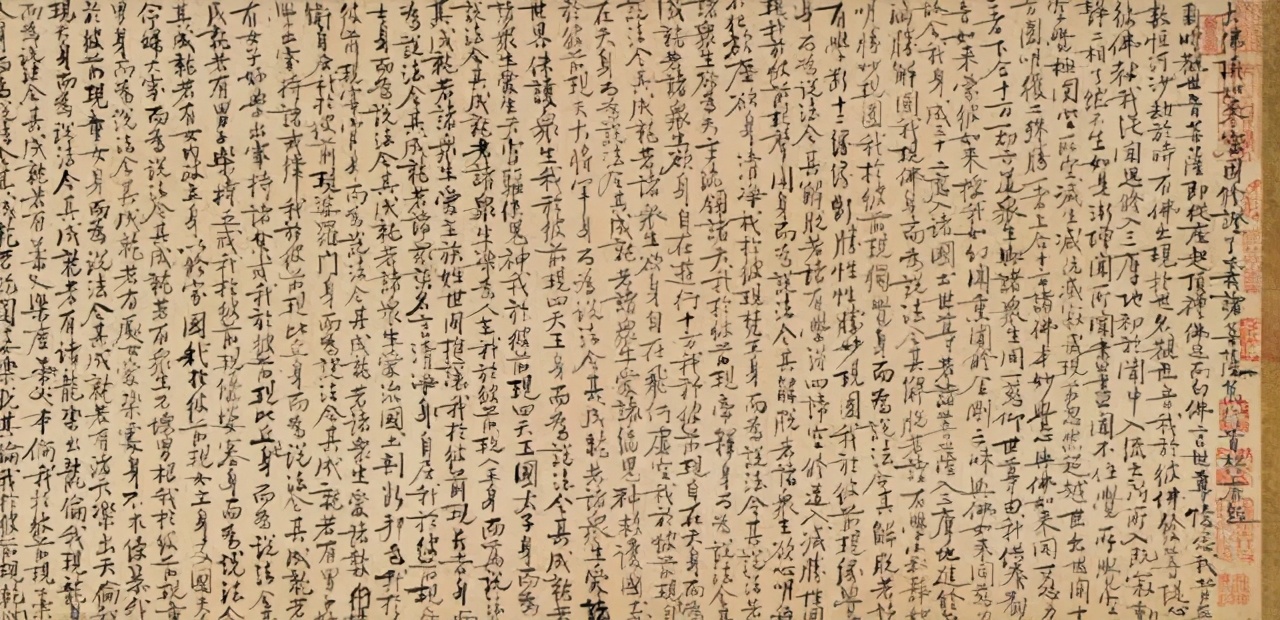 大佛頂如來密因修證了義諸菩薩萬行首楞嚴經
爾時觀世音菩薩即從座起頂禮佛足而白佛言世尊憶念我昔無
數恒河沙劫於時有佛出現於世名觀世音我於彼佛發菩提心
彼佛教我從聞思修入三摩地初於聞中入流亡所所入既寂動
靜二相了然不生如是漸增聞所聞盡盡聞不住覺所覺空
空覺極圓空所空滅生滅既滅寂滅現前忽然超越世出世間十
方圓明獲二殊勝一者上合十方諸佛本妙覺心與佛如來同一慈力
二者下合十方一切六道眾生與諸眾生同一悲仰世尊由我供養觀
音如來蒙彼如來授我如幻聞熏聞修金剛三昧與佛如來同慈力
故令我身成三十二應入諸國土世尊若諸菩薩入三摩地進修無
漏勝解現圓我現佛身而為說法令其解脫若諸有學寂靜妙
明勝妙現圓我於彼前現獨覺身而為說法令其解脫若諸
有學斷十二緣緣斷勝性勝妙現圓我於彼前現緣覺
身而為說法令其解脫若諸有學得四諦空修道入滅勝性圓
現我於彼前現聲聞身而為說法令其解脫若諸眾生欲心明悟
不犯欲塵欲身清淨我於彼前現梵王身而為說法令其解脫若
諸眾生欲為天主統領諸天我於彼前現帝釋身而為說法令其
成就若諸眾生欲身自在遊行十方我於彼前現自在天身而為
說法令其成就若諸眾生欲身自在飛行虛空我於彼前現大自
在天身而為說法令其成就若諸眾生愛統鬼神救護國土我
於彼前現天大將軍身而為說法令其成就若諸眾生愛統
世界保護眾生我於彼前現四天王身而為說法令其成就若
諸眾生愛生天宮驅使鬼神我於彼前現四天王國太子身而為
說法令其成就若諸眾生樂為人王我於彼前現人王身而為說法
令其成就若諸眾生愛主族姓世間推讓我於彼前現長者身而
為說法令其成就若諸眾生愛談名言清淨自居我於彼前現居
士身而為說法令其成就若諸眾生愛治國土剖斷邦邑我於
彼前現宰官身而為說法令其成就若諸眾生愛諸數術攝
衛自居我於彼前現婆羅門身而為說法令其成就若有男子好
學出家持諸戒律我於彼前現比丘身而為說法令其成就若
有女子好學出家持諸禁戒我於彼前現比丘尼身而為說法令其
成就若有男子樂持五戒我於彼前現優婆塞身而為說法令
其成就若有女內政立身以修家國我於彼前現女主身及國夫人
命婦大家而為說法令其成就若有眾生不壞男根我於彼前現童
男身而為說法令其成就若有處女愛樂處身不求侵暴我
於彼前現童女身而為說法令其成就若有諸天樂出天倫我
現天身而為說法令其成就若有諸龍樂出龍倫我現龍身
而為說法令其成就若有藥叉樂度本倫我於彼前現藥
叉身而為說法令其成就若乾闥婆樂脫其倫我於彼前現乾闥